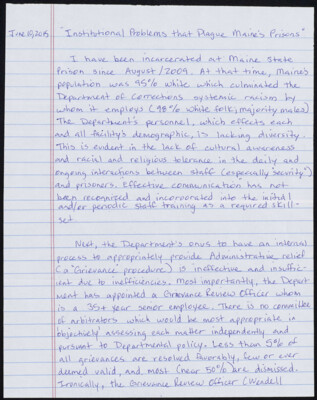 June 10, 2015 "Institutional Problems that Plague Maine's Prisons"
I have been incarcerated at Maine State
Prison since August/2009. At that time, Maine's
population was 95% white which culminated the
Department of Corrections systemic racism by
whom it employs (98% white folk; majority males)
The Department's personnel, which effects each
and all facility's demographic, is lacking diversity.
This is evident in the lack of cultural awareness
and racial and religious tolerance in the daily and
ongoing interactions between staff (especially Security")
and prisoners. Effective communication has not
been recognized and incorporated into the initial
and/or periodic staff training as a required skill-
set.
Next, the Department's onus to have an internal
process to appropriately provide Administrative relief
(a "Grievance procedure) is ineffective and insuffic-
ient due to inefficiencies. Most importantly, the Depart-
ment has appointed a Grievance Review Officer whom
is a 35+ year senior employee. There is no committee
of arbitrators which would be most appropriate in
objectively assessing each matter independently and
pursuant to Departmental policy. Less than 5% of
all grievances are resolved favorably, few or ever
deemed valid, and most (near 50% are dismissed.
Ironically, the Grievance Review Officer (Wendell